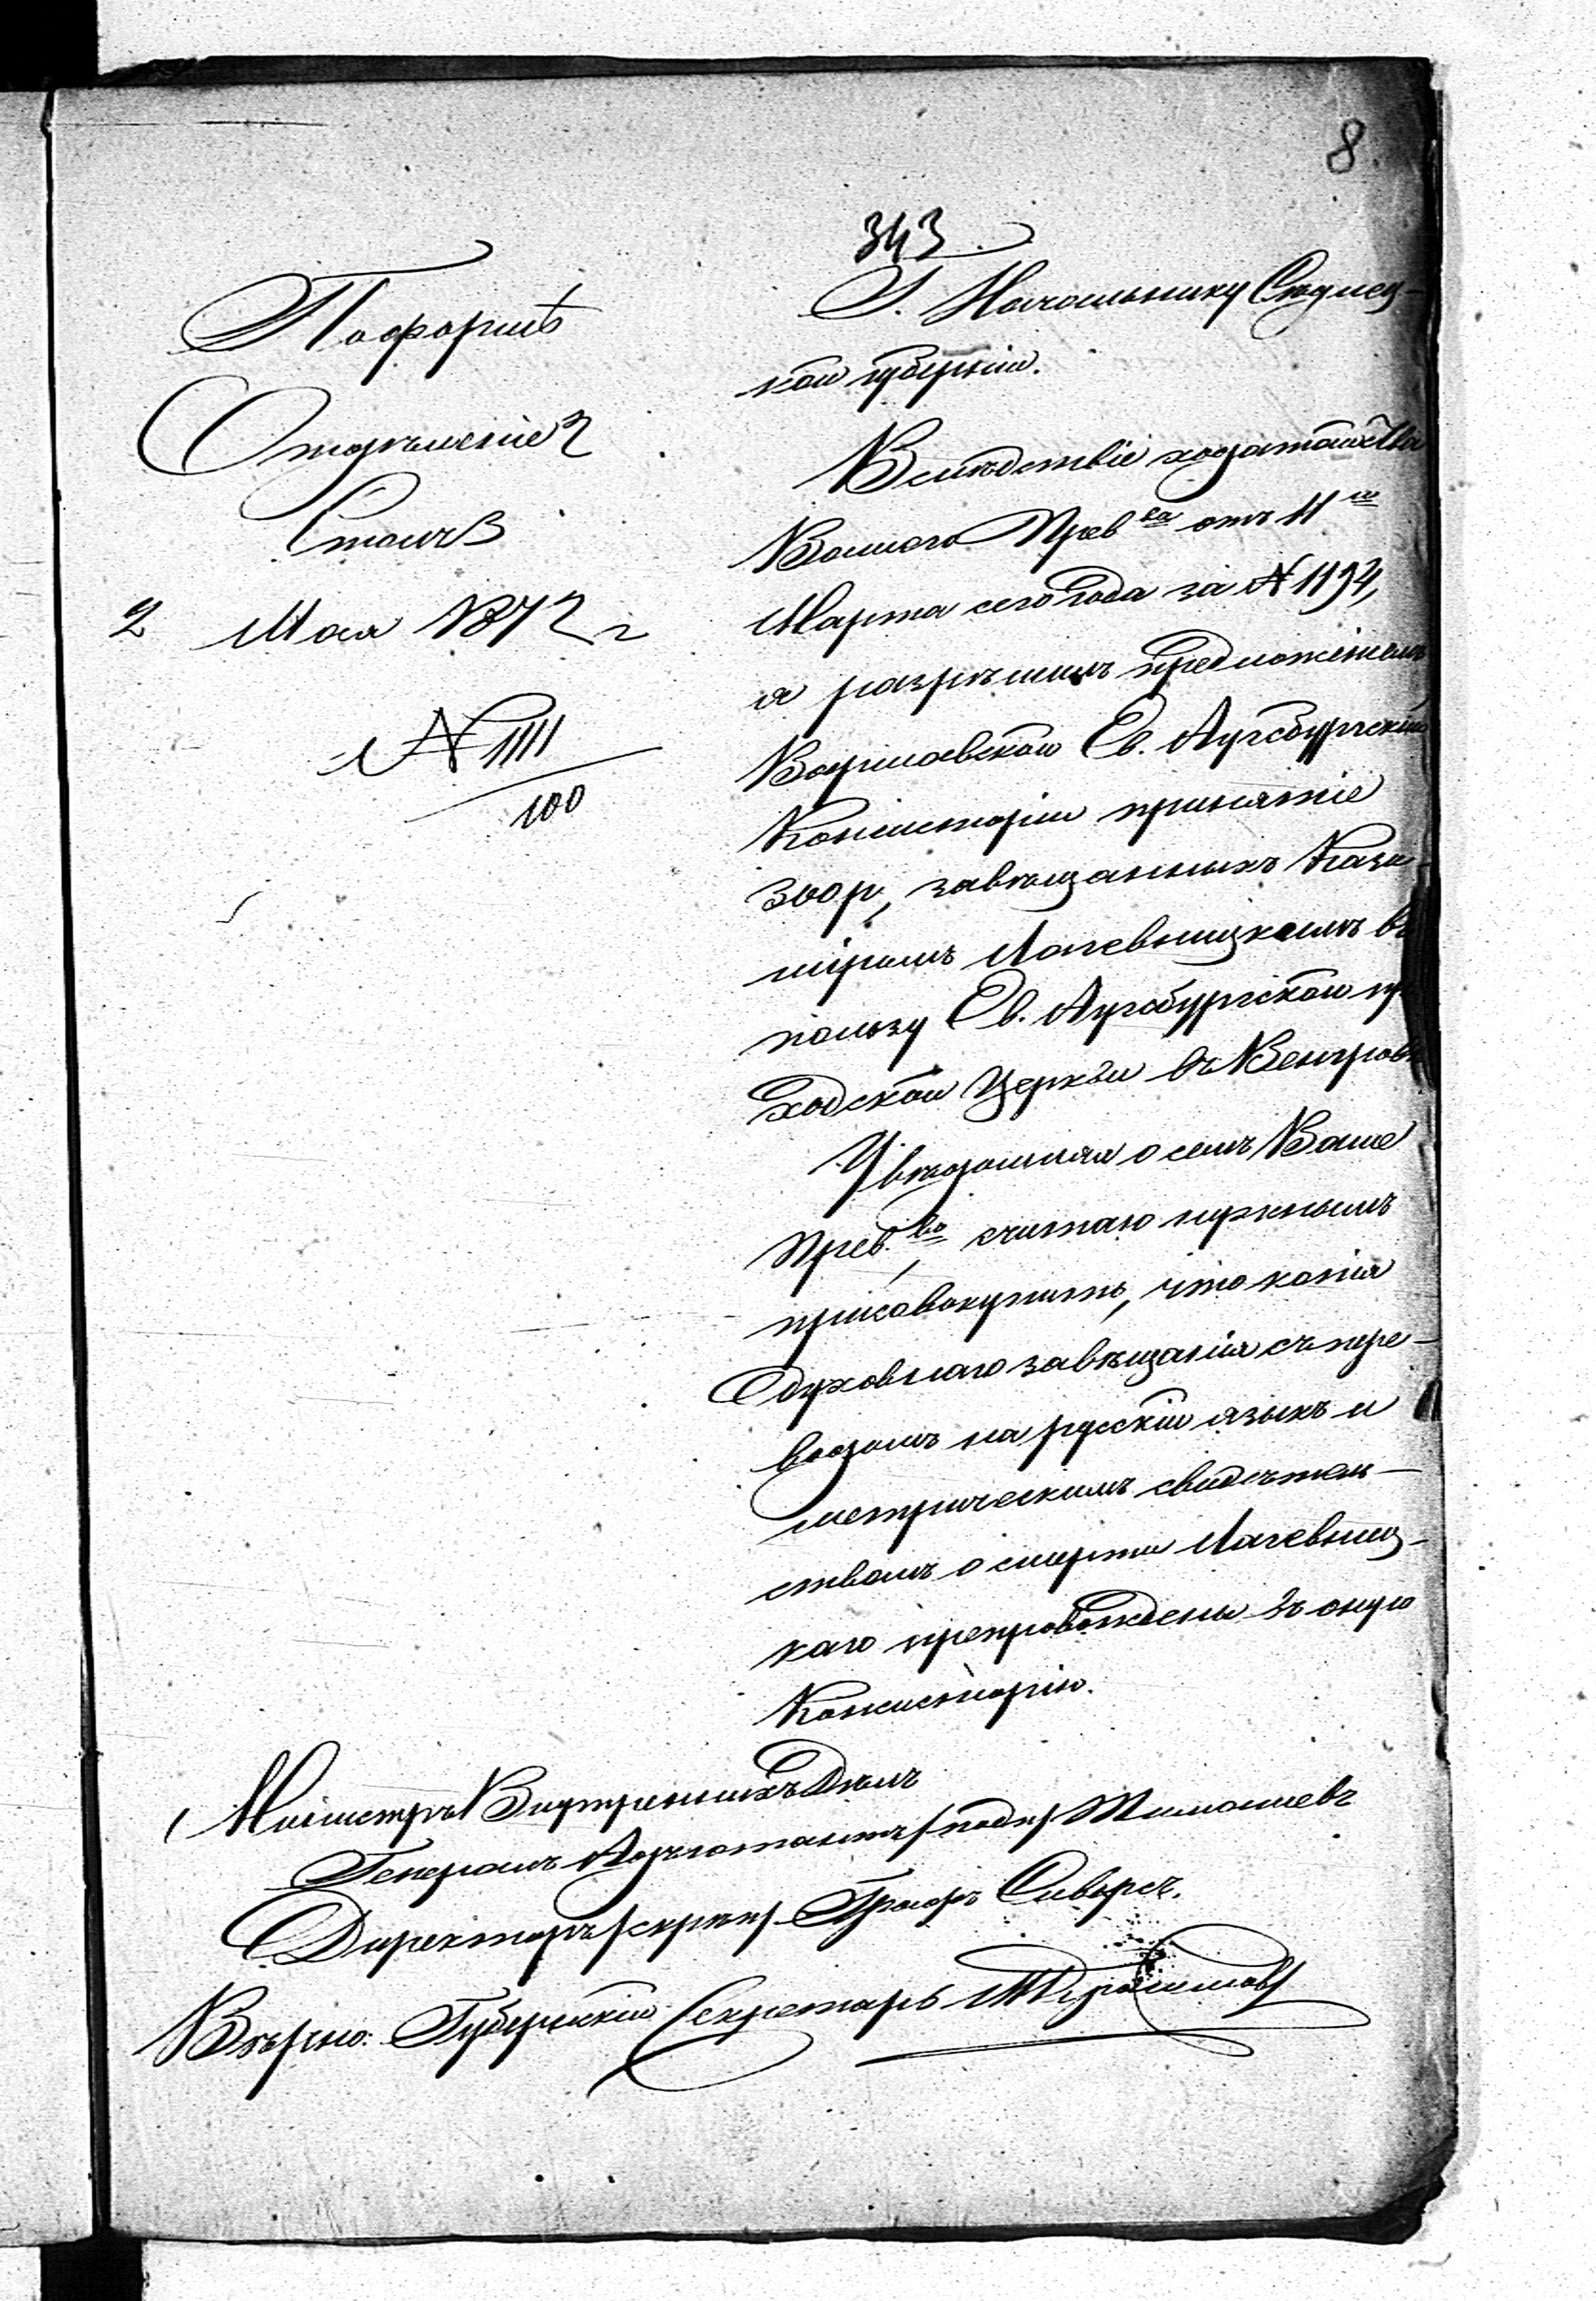 8.
343.
По формѣ
Отдѣленіе 2
Столъ 3
2 Мая 1872 г
№ 1111
100
Г. Начальнику Сѣдлец-
кой губерніи.
Вслѣдствіе ходатайства
Вашего Прев.ва отъ 11го
Марта сего года за № 1194,
я разрѣшилъ предложеніемъ
Варшавской Ев. Аугсбургской
Консисторіи принятіе
300 р, завѣщанныхъ Кази-
міромъ Лачевницкимъ въ
пользу Ев. Аугсбургской при
ходской Церкви въ Венгровѣ
Увѣдомляя о семъ Ваше
Прев.во, считаю нужнымъ
присовокупить, что копія
духовнаго завѣщанія съ пере-
водомъ на русскій языкъ и
метрическимъ свидѣтель-
ствомъ о смерти Лачевниц-
каго препровождены въ оную
Консисторію.
Министръ Внутреннихъ Дѣлъ
Генералъ Адъютантъ /подп/ Тимашевъ
Директоръ /скрѣп/ Графъ Сиверсъ.
Вѣрно: Губернскій Секретарь